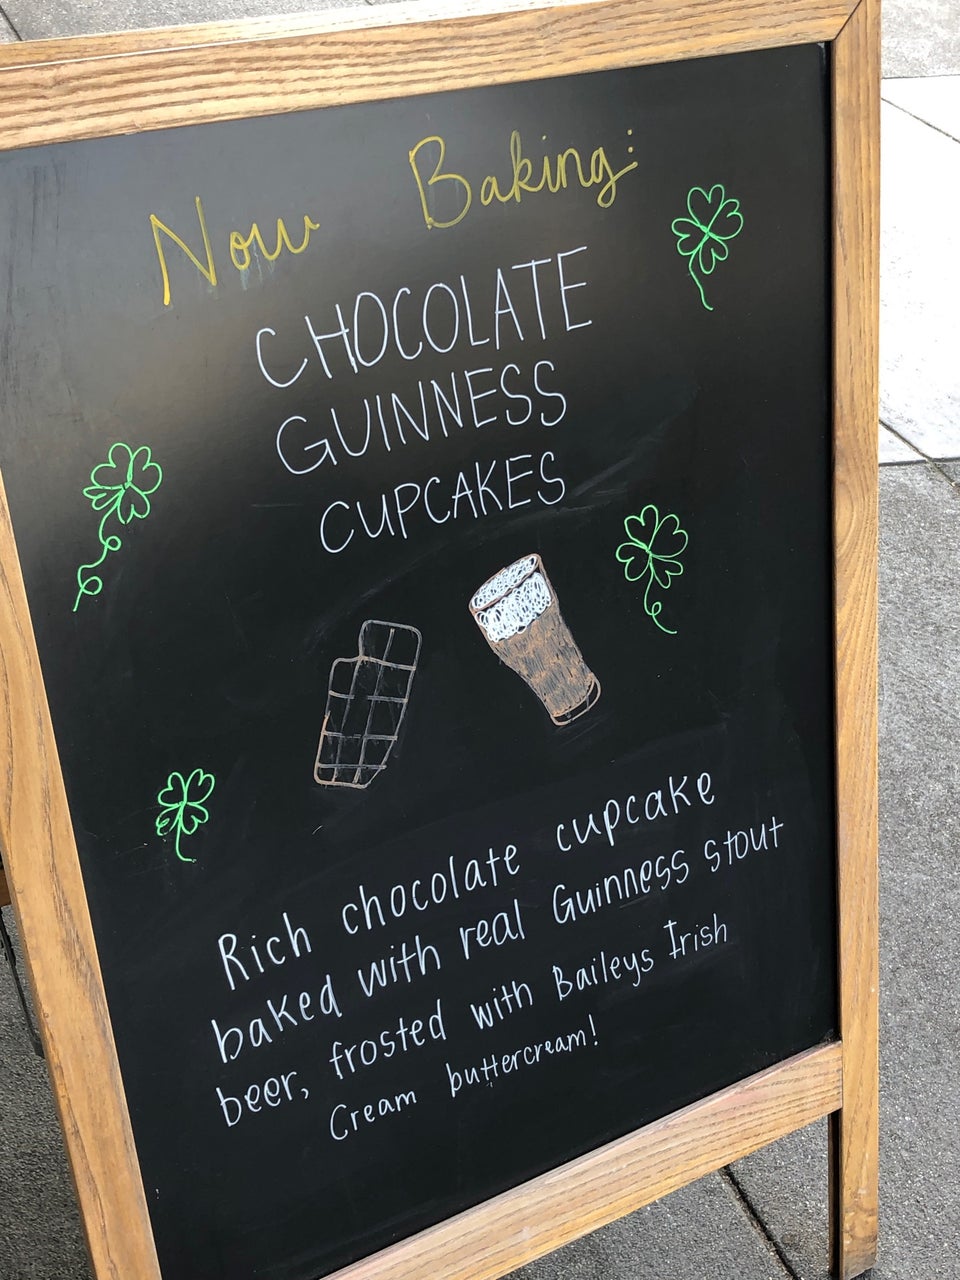 Now Baking:
CHOCOLATE
GUINNESS
CUPCAKES
Rich chocolate cupcake
baked with real Guinness stout
beer, frosted with Baileys Irish
Cream buttercream!